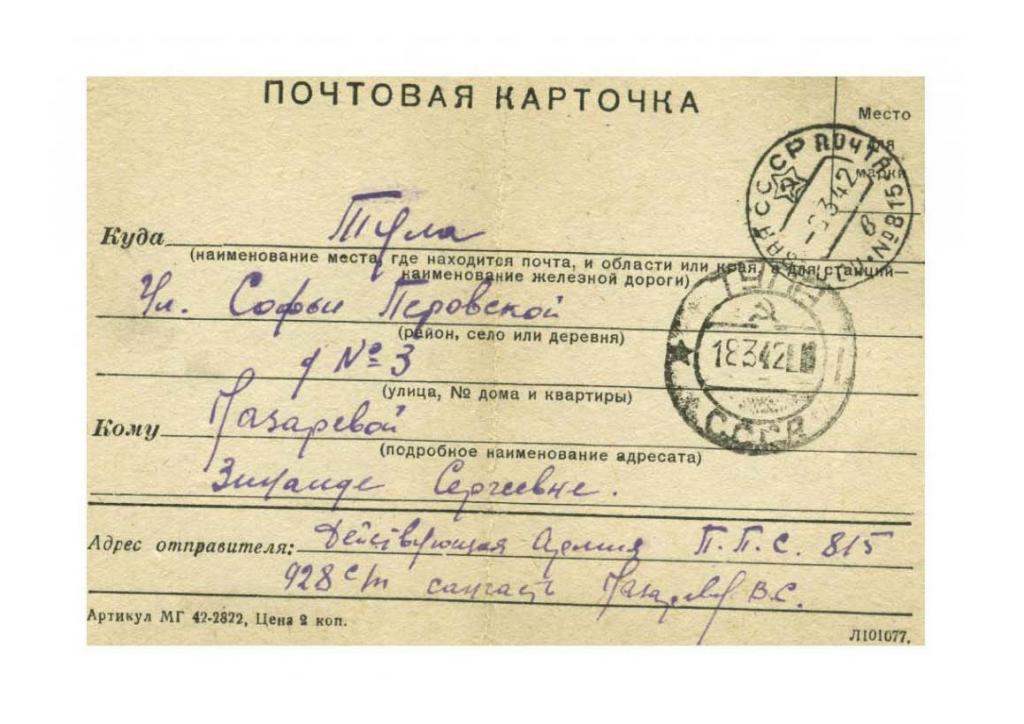 ПОЧТОВАЯ КАРТОЧКА
Место
для
марки
ПОЧТА
СССР
№ 815
8 3 42
в
Куда Тула
(наименование места, где находится почта, и области или края, а для станций—
наименование железной дороги)
Ул. Софьи Перовской
(район, село или деревня)
д №3
(улица, № дома и квартиры)
ТУЛА
18 3 42
СССР
Кому Назаревой
(подробное наименование адресата)
Зинаиде Сергеевне.
Адрес отправителя: Действующая Армия П.П.С. 815
928 с/п санчасть Назарев В.С.
Артикул МГ 42-2822, Цена 2 коп.
Л101077.